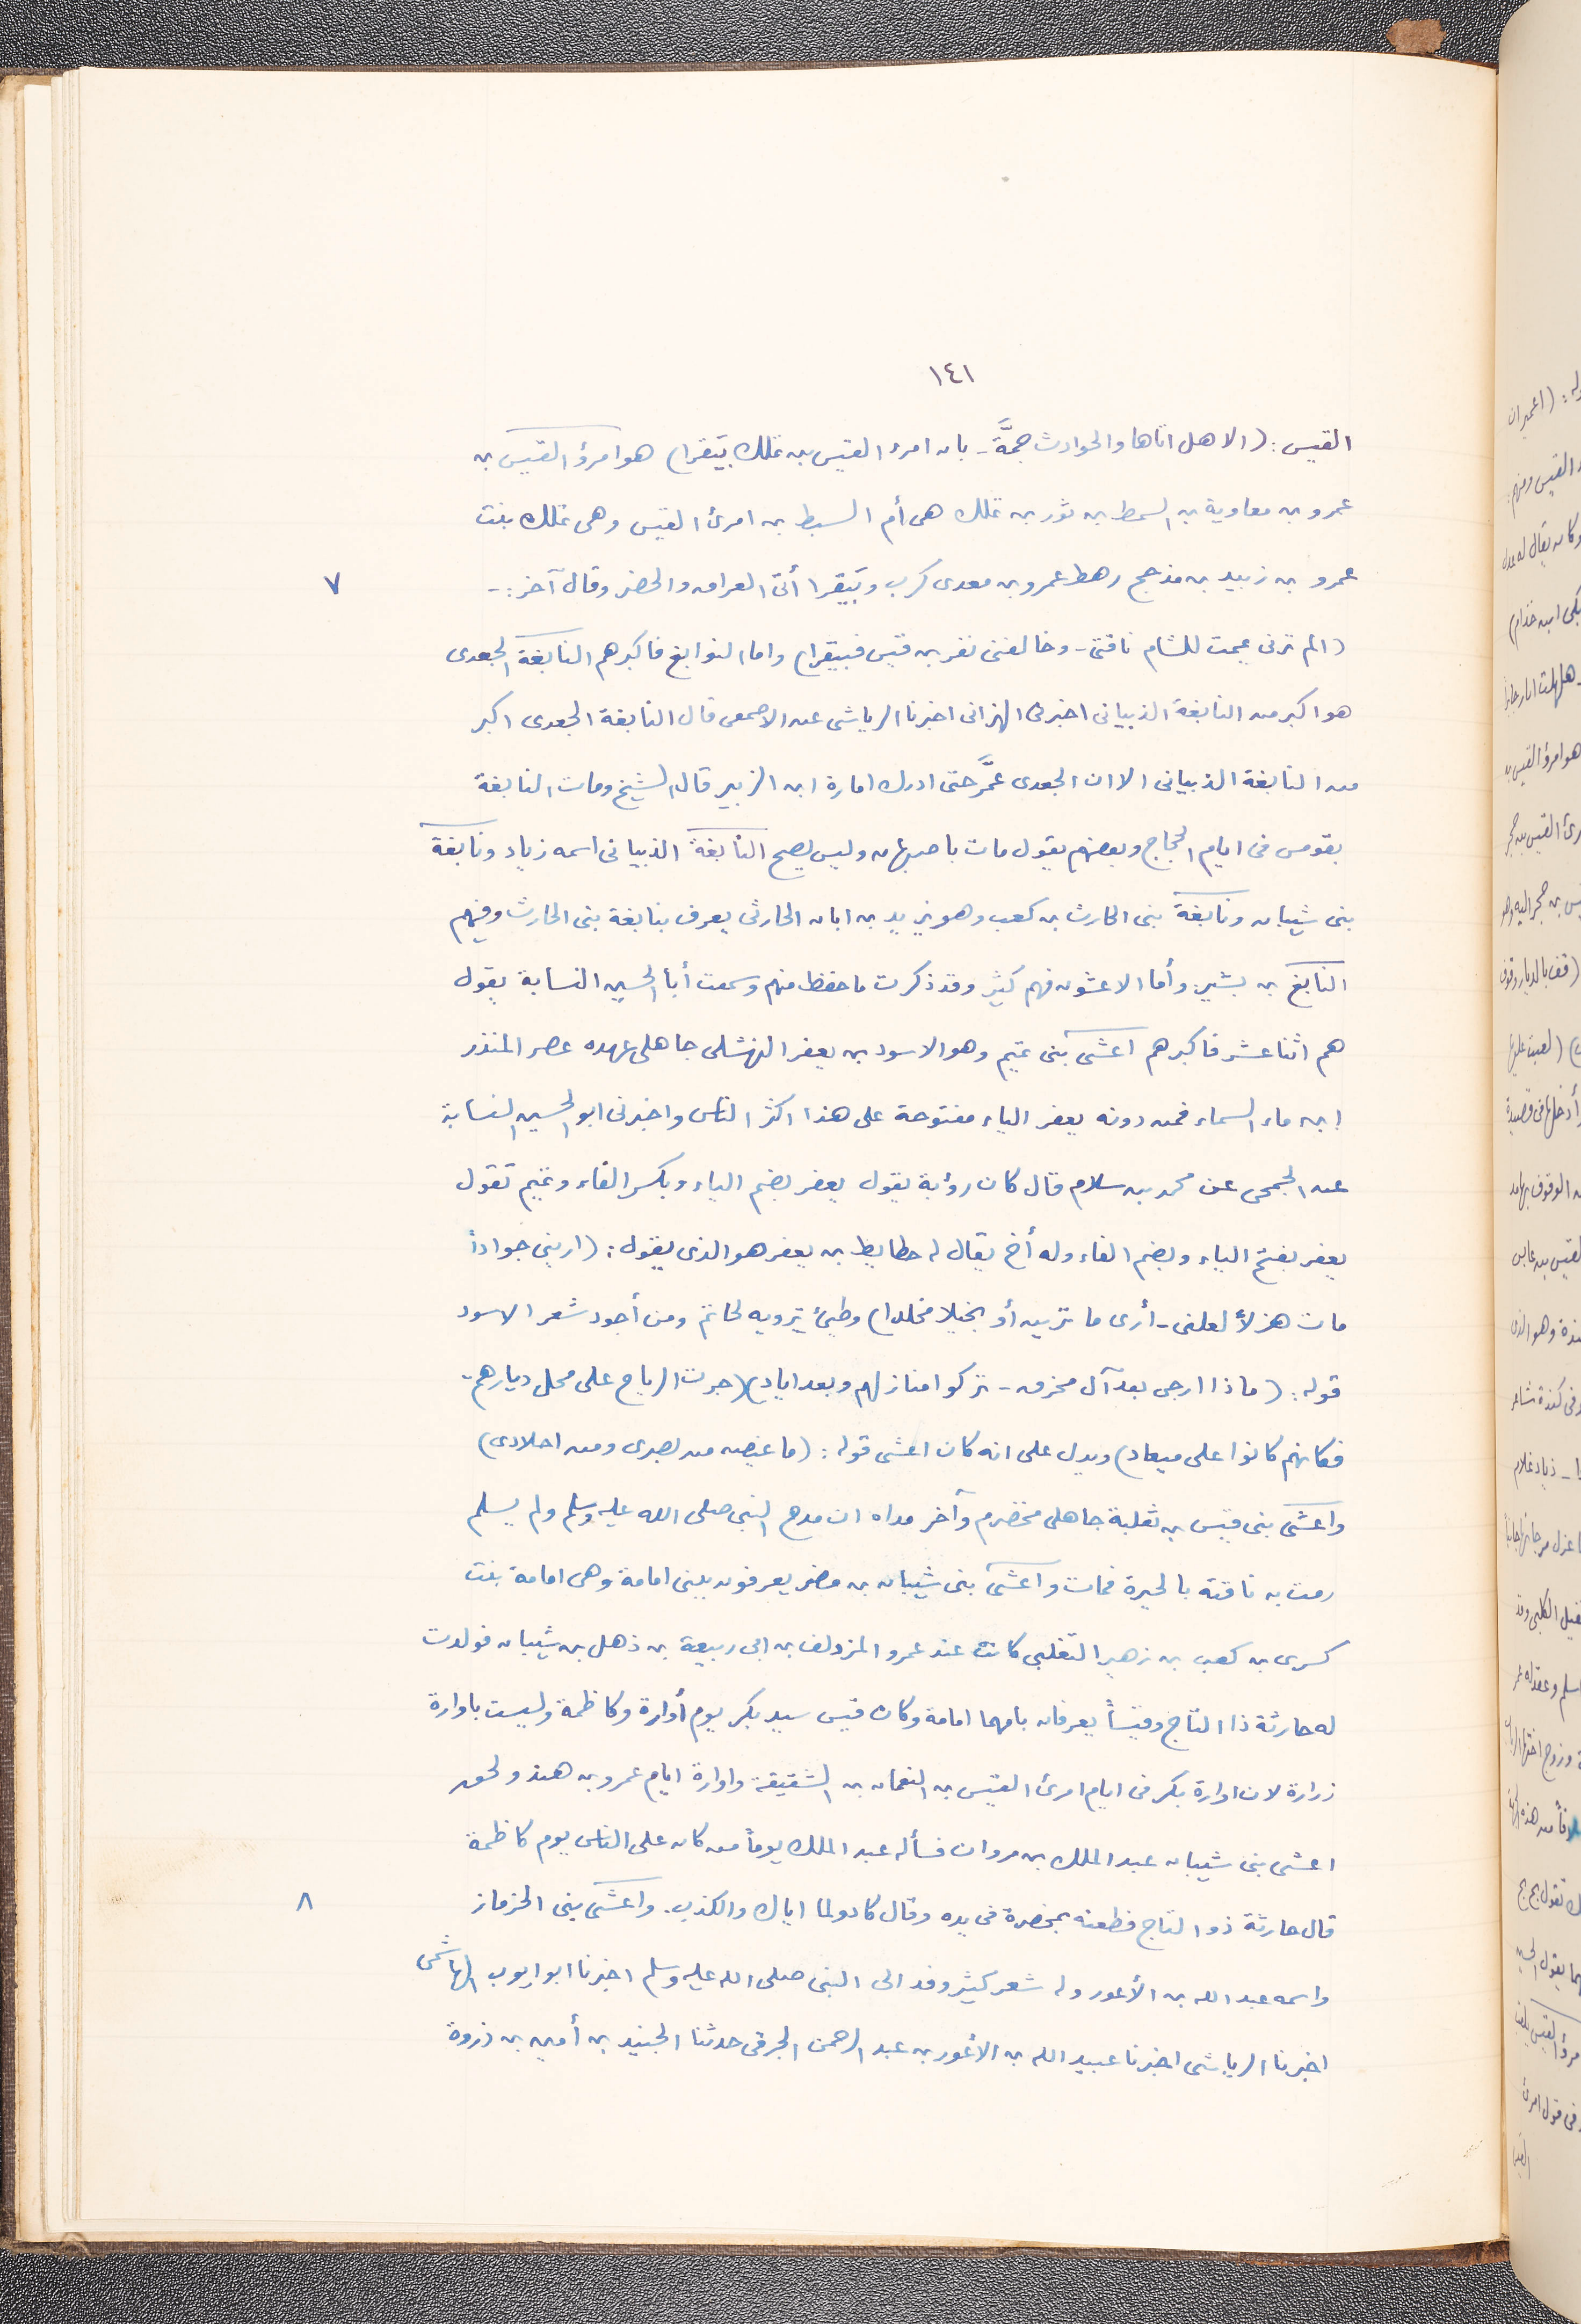 ١٤١
القيس: (الا هل اتاها والحوادث جمَّة - بان امرء القيس بن تملك بيَقرا) هو امرؤ القيس بن
عمرو بن معاوية بن السمط بن ثور بن تملك هى أم السبط بن امرئ القيس وهى تملك بنت
عمرو بن زبيد بن مذحج رهط عمرو بن معدى كرب وبَيقرا أتى العراق والحضر وقال آخر :- ٧
(الم ترنى عجت للشام ناقتى - وخالفنى نفر بن قيس فبيقرا) واما النوابغ فاكبرهم النابغة الجعدى
هو اكبر من النابغة الذبيانى اخبرنى الهزانى اخبرنا الرياشى عن الاصمعى قال النابغة الجعدى اكبر
من النابغة الذبيانى الا ان الجعدى عمَّر حتى ادرك امارة ابن الزبير قال الشيخ ومات النابغة
بقومس فى ايام الحجاج وبعضهم يقول مات باصبهان وليس يصح النابغة الذبيانى اسمه زياد ونابغة
بنى شيبان ونابغة بنى الحارث بن كعب وهو يزيد بن ابان الحارثى يعرف بنابغة بنى الحارث وفيهم
النابغ بن بشير. وأما الاعشون فهم كثير وقد ذكرت ما حفظ منهم وسمعت أبا الحسين النسابة يقول
هم اثنا عشر فاكبرهم اعشى بنى تميم وهو الاسود بن يعفر النهشلى جاهلى عهده عصر المنذر
ابن ماء السماء فمن دونه يعفر الياء مفتوحة على هذا اكثر الناس واخبرنى ابو الحسين النسابة
عن الجمحى عن محمد بن سلام قال كان رؤبة يقول يعفر بضم الياء وبكسر الفاء وتميم تقول
يعفر بفتح الياء وبضم الفاء وله أخ يقال له حطايط بن يعفر هو الذى يقول: (ارينى جواداً
مات هزلاً لعلنى - أرى ما ترين أو بخيلا مخلدا) وطيئ يترويه لحاتم ومن أجود شعر الاسود
قوله: (ماذا ارجى بعد آل محرق - تركوا منازلهم وبعد اياد) (جرت الرياح على محل ديارهم -
فكانهم كانوا على ميعاد) ويدل على انه كان اعشى قوله: (ما غيصه من بصرى ومن اجلادى)
واعشى بنى قيس بن ثعلبة جاهلى مخضرم وآخر مداه ان مدح النبى صلى الله عليه وسلم ولم يسلم
رمت به ناقته بالحيرة فمات واعشى بنى شيبان بن مضر يعرفون ببنى امامة وهى امامة بنت
كسرى بن كعب بن زهير التغلبى كانت عند عمرو المزدلف بن ابى ربيعة بن ذهل بن شيبان فولدت
له حارثة ذا التاج وقيساً يعرفان بامهما امامة وكان قيس سيد بكر يوم أوارة وكاظمة وليست باوارة
زرارة لان اوارة بكر فى ايام امرئ القيس بن النعمان بن الشقيقة واوارة ايام عمرو بن هند ولحق
اعشى بنى شيبان عبد الملك بن مروان فسأله عبد الملك يوماً من كان على الناس يوم كاظمة
قال حارثة ذو التاج فطعنه بمخصرة فى يده وقال كادولما اياك والكذب. واعشى بنى الحزماز ٨
واسمه عبد الله بن الأعور وله شعر كثير وفد الى النبى صلى الله عليه وسلم اخبرنا ابو ايوب الهاشمى
اخبرنا الرياشى اخبرنا عبيد الله بن الأعور بن عبد الرحمن الجرفى حدثنا الجنيد بن أمين بن ذروة